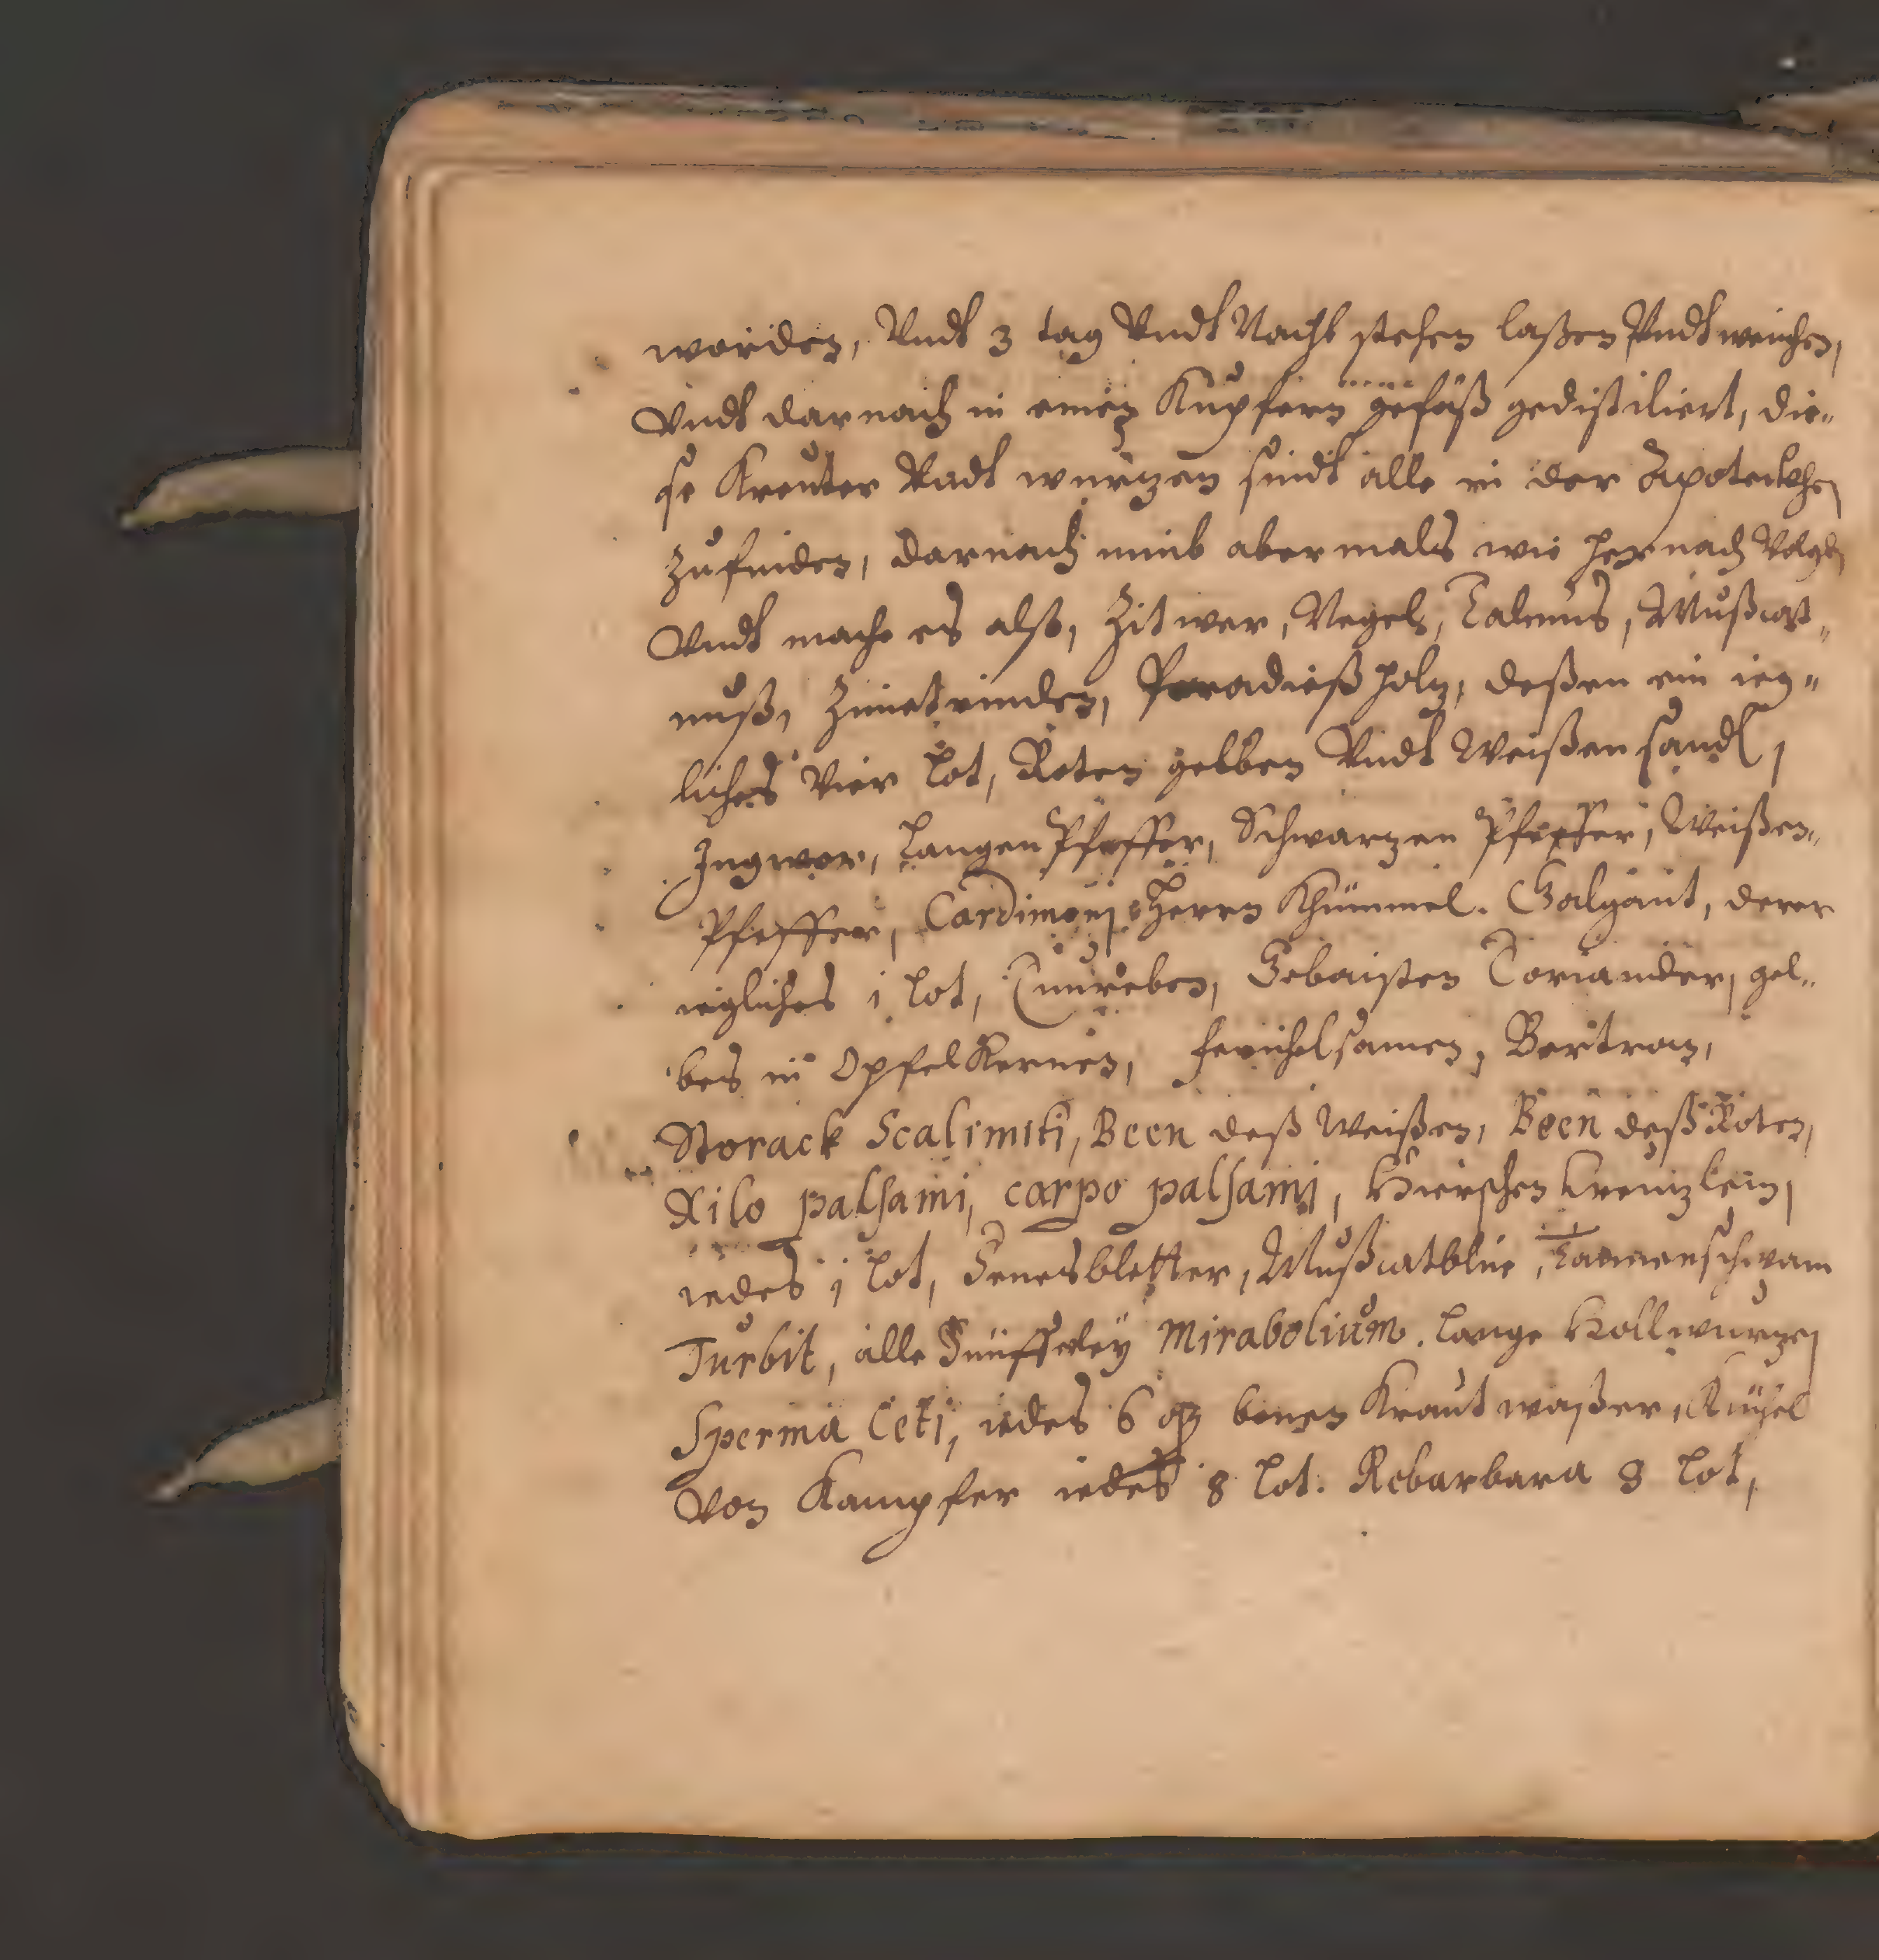 worden, Vndt 3 tag Vndt Nacht stehen laßen Vndt weichen,
Vndt darnach in einen Kupfern gefäß gedistiliert, die„
se Kreuter Vndt wurtzen sindt alle in der Apoteckhen
zufinden, darnach nimb abermals wie hernach Volgt
Vndt mache es also, Zitwer, Negeln, Calmus, Mußcat„
nuß, Zimetrinden, Paradieß holtz, deßen ein ieg„
liches Vier lot, Roten gelben Vndt Weißen sandl,
Ingwer, Langen Pfeffer, Schwarzen Pfeffer, Weißen„
Pfeffer, Cardimomj, Khümmel. Galgant, derer
iegliches j lot, Gebaisten Coriander, gel„
bes in Opfel Kernen, fenichelsamen, Bertram,
Storack Scalimiti, Been deß Weißen, Been deß Roten,
Xilo palsami, carpo palsamj,
iedes j lot, Senesbletter, Mußcatblüe,
Turbit, alle Fünfferley Mirabolium. lange Hollwurzen
Sperma Ceti, iedes 6 Kraut waßer,
Von Kampfer iedes 8 lot. Rebarbara 8 lot,